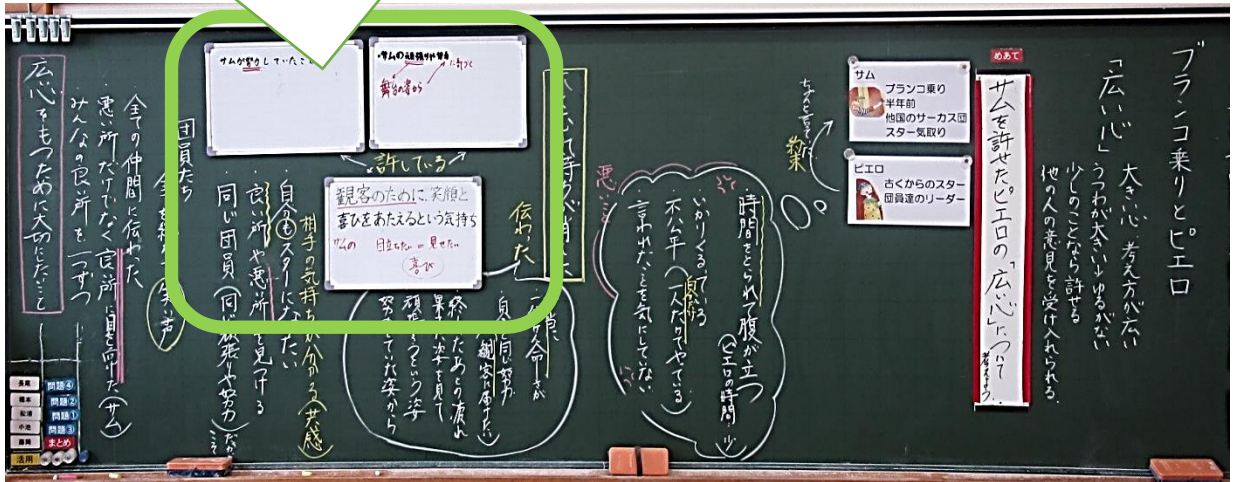 ブランコ乗りとピエロ
「広い心」
大きい心 考え方が広い
うつわが大きい→ゆるがない
少しのことなら許せる
他の人の意見を受け入れられる。
めあて
サムを許せたピエロの「広い心」について
考えよう。
サム
ブランコ乗り
半年前
他国のサーカス団
スター気取り
ピエロ
古くからのスター
団員達のリーダー
約束
時間をとられて腹が立つ
(ピエロの時間・少)
いかりくるっている
自分だけ
不公平(一人だけでやっている)
言われたことを気にしていない
悪いこと
伝わった
自分と同じ努力
観客に届けたい
終わったあとの疲れ
果てた姿を見て
頑張るという姿
努力していた姿から
サムの頑張りや努力
に気づく
舞台の姿から
サムが努力していたこ
許している
観客のために、笑顔と
喜びをあたえるという気持ち
サムの 目立ちたい = 見せたい
喜び
相手の気持ちが分かる(共感)
自分もスターになりたい
良い所や悪い所を見つける
同じ団員(同じ頑張りや努力)
だからこそ
団員たち
全ての仲間に伝わった
悪い所だけでなく良い所に目を向けた(サム)
みんなの良い所を一つずつ
広い心をもつために大切にしたいこと
長尾
問題④
橋本
問題②
松浦
問題①
小池
問題③
藤岡
まとめ
活用